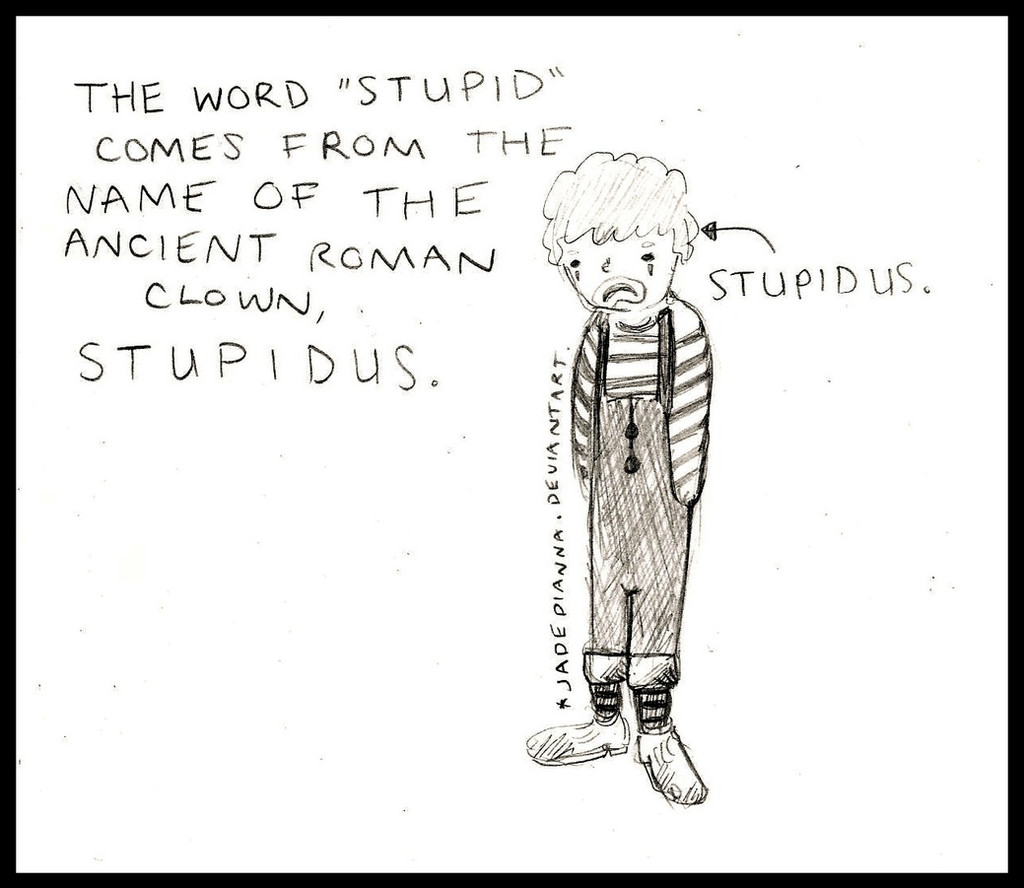 THE WORD "STUPID"
COMES FROM THE
NAME OF THE
ANCIENT ROMAN
CLOWN,
STUPIDUS.
STUPIDUS.
*JADEDIANNA.DEVIANTART.